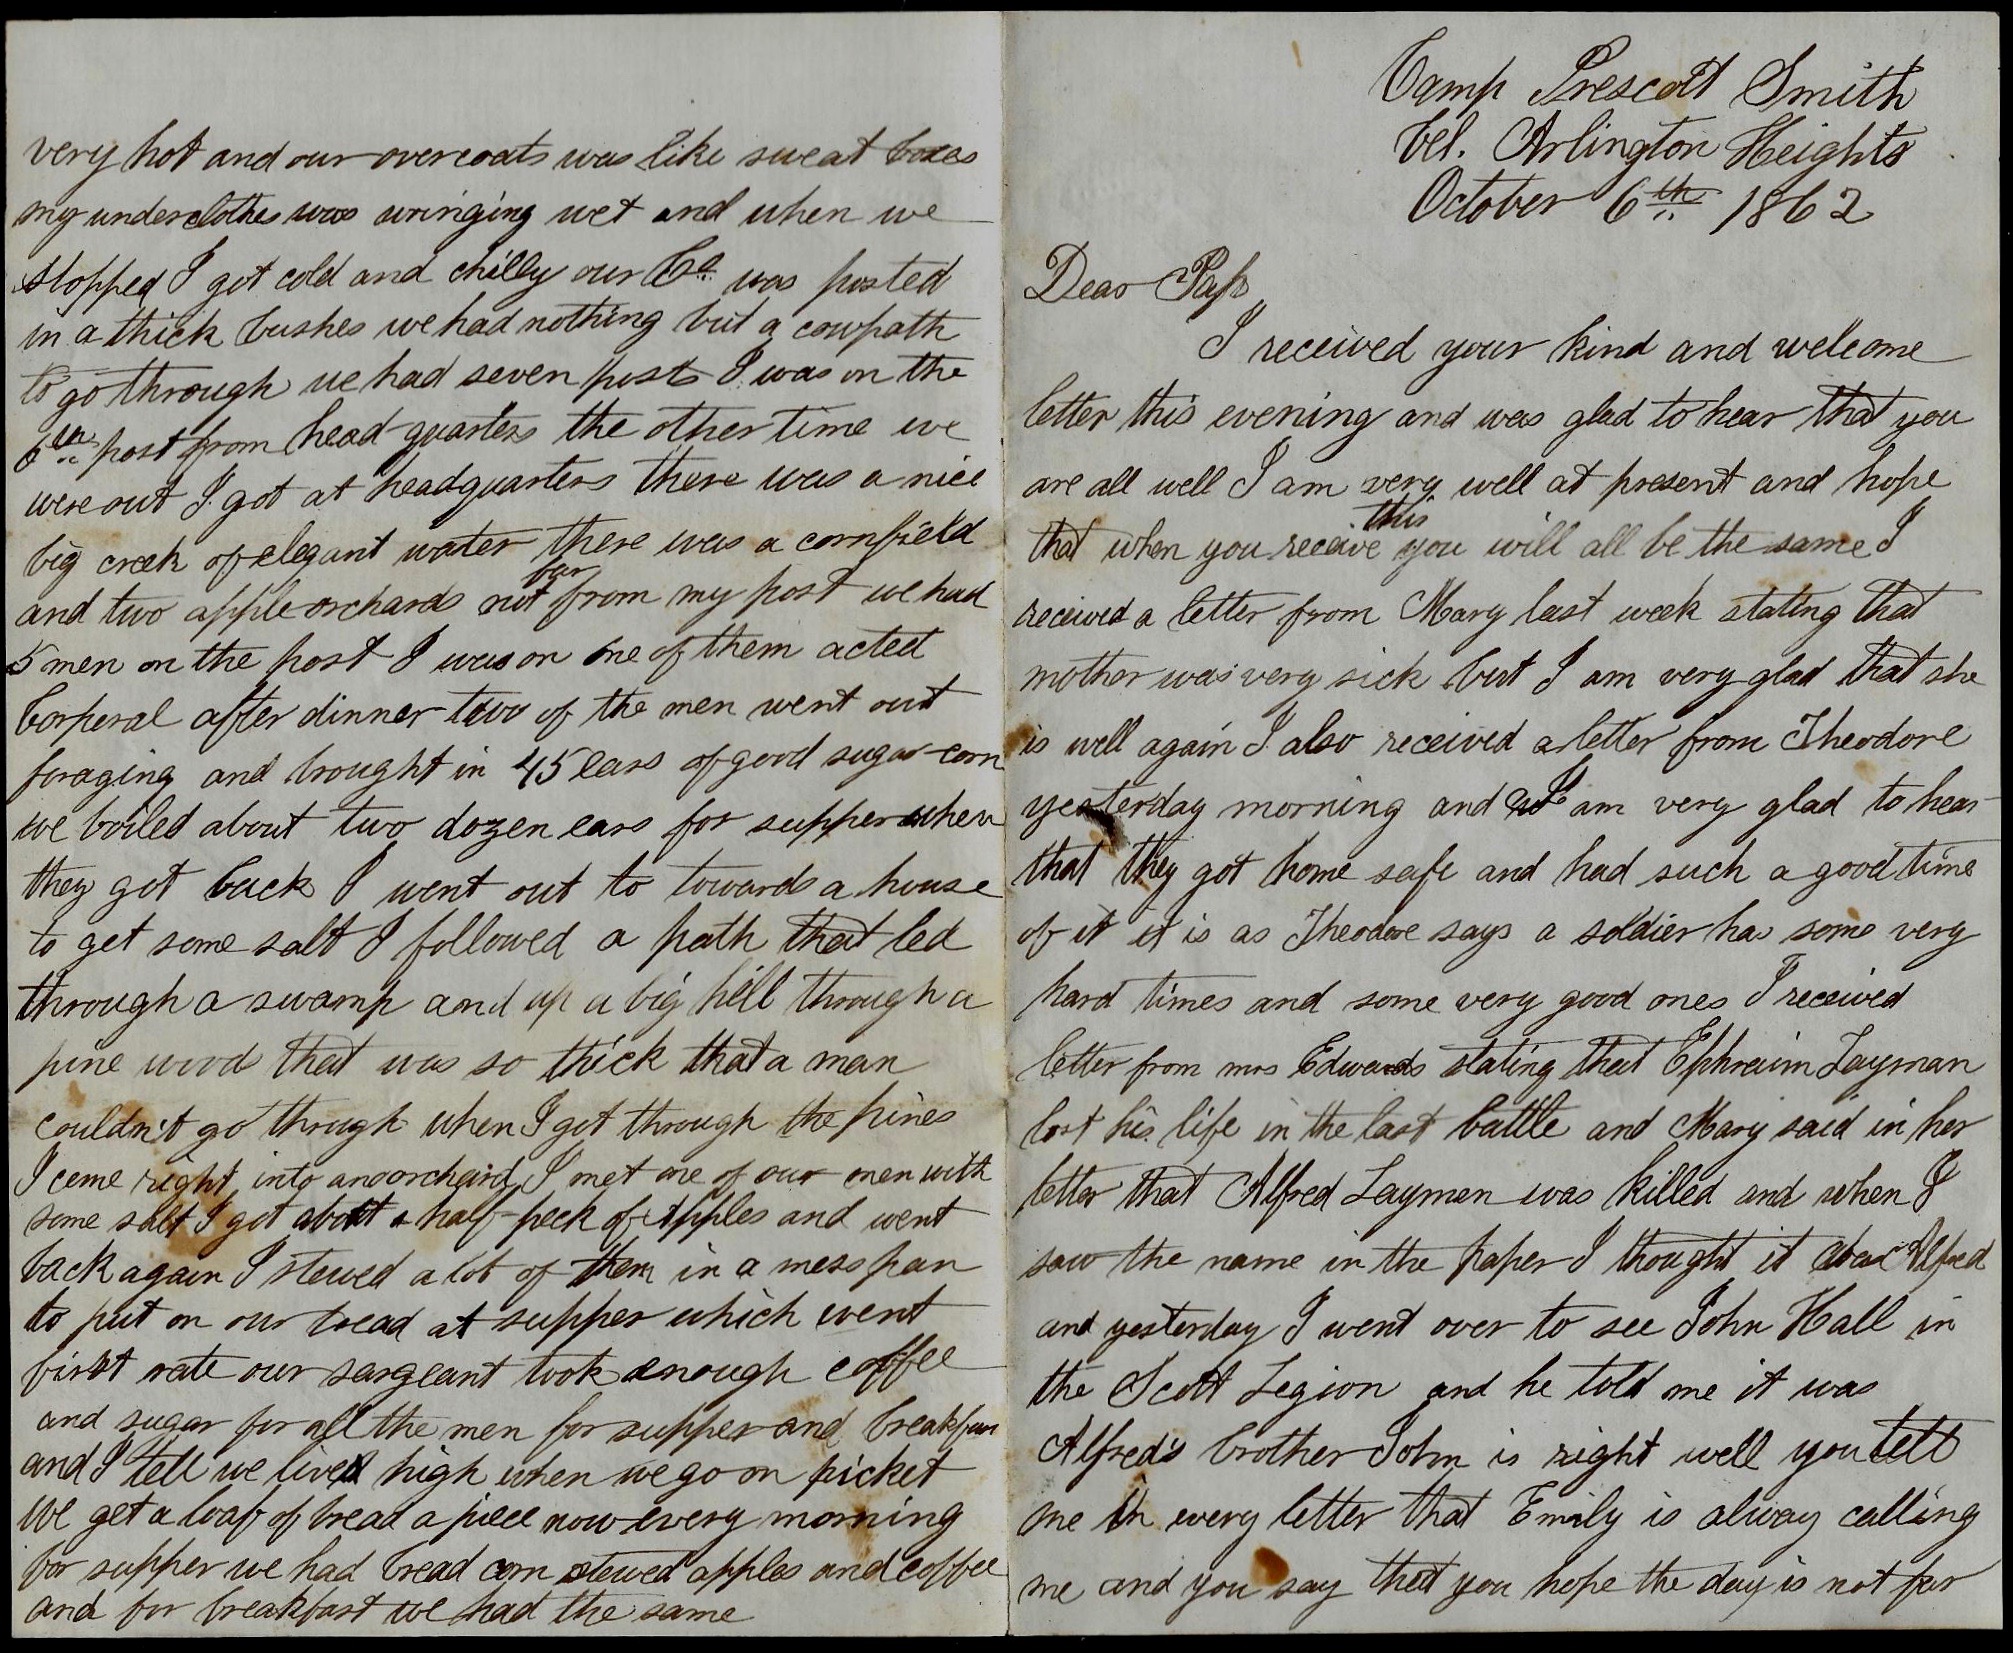 Camp Prescott Smith
Arlington Heights
October 6th 1862
Dear
I received your kind and welcome
letter this evening and was glad to hear that you
are all well I am very well at present and hope
that when you receive this you will all be the same I
received a letter from Mary last week stating that
mother was very sick but I am very glad that she
is well again I also received a letter from Theodore
yesterday morning and I am very glad to hear
that they got home safe and had such a good time
of it it is as Theodore says a soldier has some very
hard times and some very good ones I received
letter from mrs Edwards stating that Ephraim Layman
lost his life in the last battle and Mary said in her
letter that Alfred Laymen was killed and when I
saw the name in the paper I thought it was Alfred
and yesterday I went over to see John Hall in
the Scott Legion and he told me it was
Alfred's brother John is right well you tell
me in every letter that Emily is alway calling
me and you say that you hope the day is not far
very hot and our overcoats was like sweat boxes
my underclothes was wringing wet and when we
stopped I got cold and chilly our Co. was posted
in a thick bushes we had nothing but a cowpath
to go through we had seven posts I was on the
6th post from head-quarters the other time we
were out I got at headquarters there was a nice
big creek of elegant water there was a cornfield
and two apple orchards not far from my post we had
5 men on the post I was on one of them acted
Corperal after dinner two of the men went out
foraging and brought in 45 ears of good sugar-corn
we boiled about two dozen ears for supper when
they got back I went out to towards a house
to get some salt I followed a path that led
through a swamp and up a big hill through a
pine wood that was so thick that a man
couldn't go through when I got through the pines
I come right into an orchard I met one of our men with
some salt I got about a half-peck of apples and went
back again I stewed a lot of them in a mess pan
to put on our bread at supper which went
first rate our sargeant took enough coffee
and sugar for all the men for supper and breakfast
and I tell we lived high when we go on picket
We get a loaf of bread a piece now every morning
for supper we had bread corn stewed apples and coffee
and for breakfast we had the same